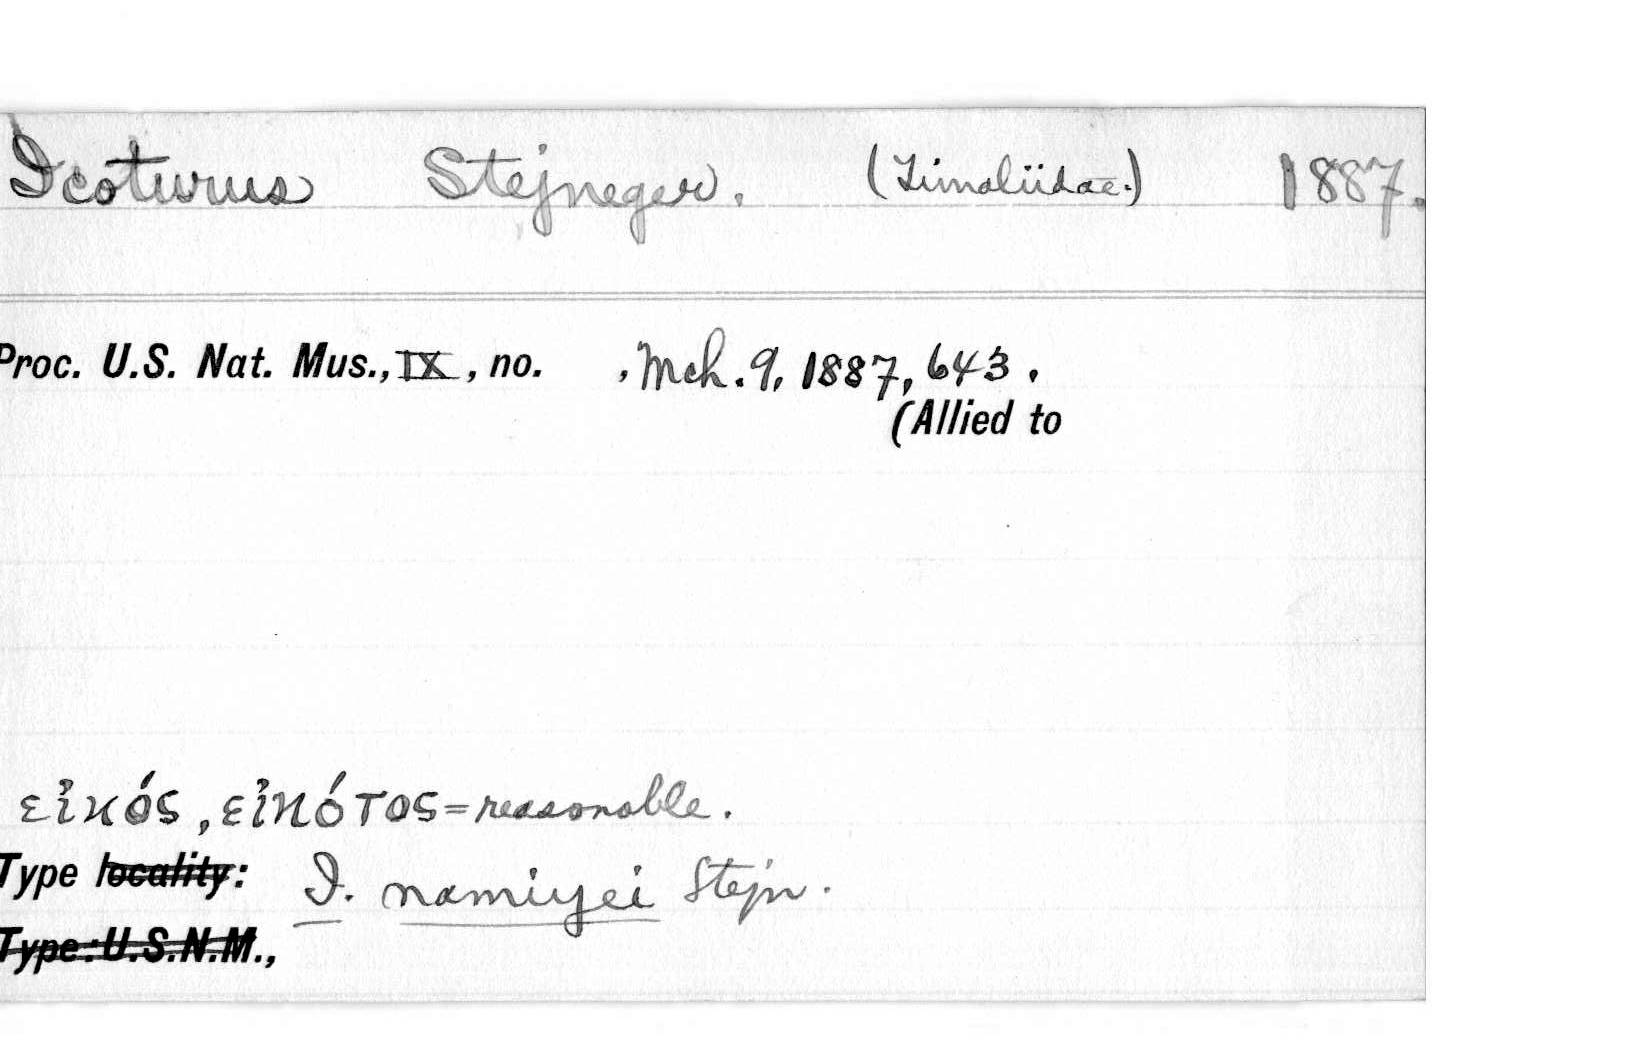 Icoturus Stejneger. (Timaliidae.) 1887.
Proc. U.S. Nat. Mus., IX, no. , Mch. 9, 1887, 643.
(Allied to
εἰκός, εἰκότος = reasonable.
Type locality: I. namiyei Stejn.
Type: U.S.N.M.,